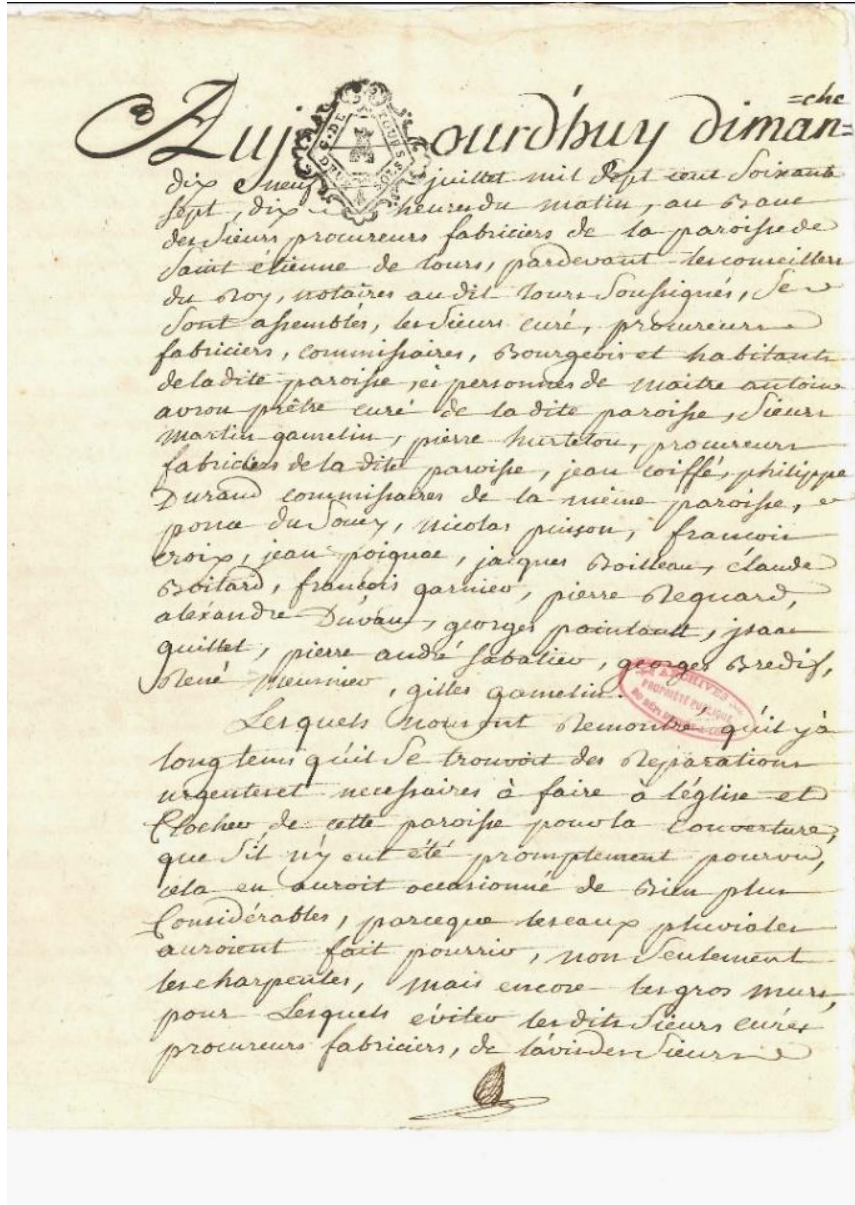 Aujourd'huy diman=
=che
G. DE TOURS
DEUX SOLS
dix neuf juillet mil sept cent soixante
sept, dix heures du matin, au Banc
des sieurs procureurs fabriciers de la paroisse de
saint étienne de tours, pardevant les conseillers
du Roy, notaires audit tours soussignés, se
sont assemblés, les sieurs curé, procureurs
fabriciers, commissaires, Bourgeois et habitants
de la dite paroisse, ès personnes de maitre antoine
avron prêtre curé de la dite paroisse, sieurs
martin gamelin, pierre hurtelou, procureurs
fabriciers de la dite paroisse, jean coiffé, philippe
Durand commissaires de la même paroisse, et
ponce du Soucy, nicolas pinson, francois
croix, jean poignac, jacques Boilleau, claude
Boitard, francois garnier, pierre Requard,
aléxandre Duvau, georges paintault, jsaac
quillet, pierre andré sabatier, georges Bredif,
René meunier, gilles gamelin.
ARCHIVES
PROPRIÉTÉ PUBLIQUE
Lesquels nous ont Remontré, qu'il y à
long tems qu'il se trouvoit des Réparations
urgentes et necessaires à faire à l'église et
Clocher de cette paroisse pour la couverture,
que s'il n'y eut été promptement pourvu,
cela en auroit occasionné de Bien plus
Considérables, parceque les eaux pluviales
auroient fait pourrir, non seulement
les charpentes, mais encore les gros murs,
pour Lesquels éviter lesdits sieurs curé et
procureurs fabriciers, de l'avis des sieurs